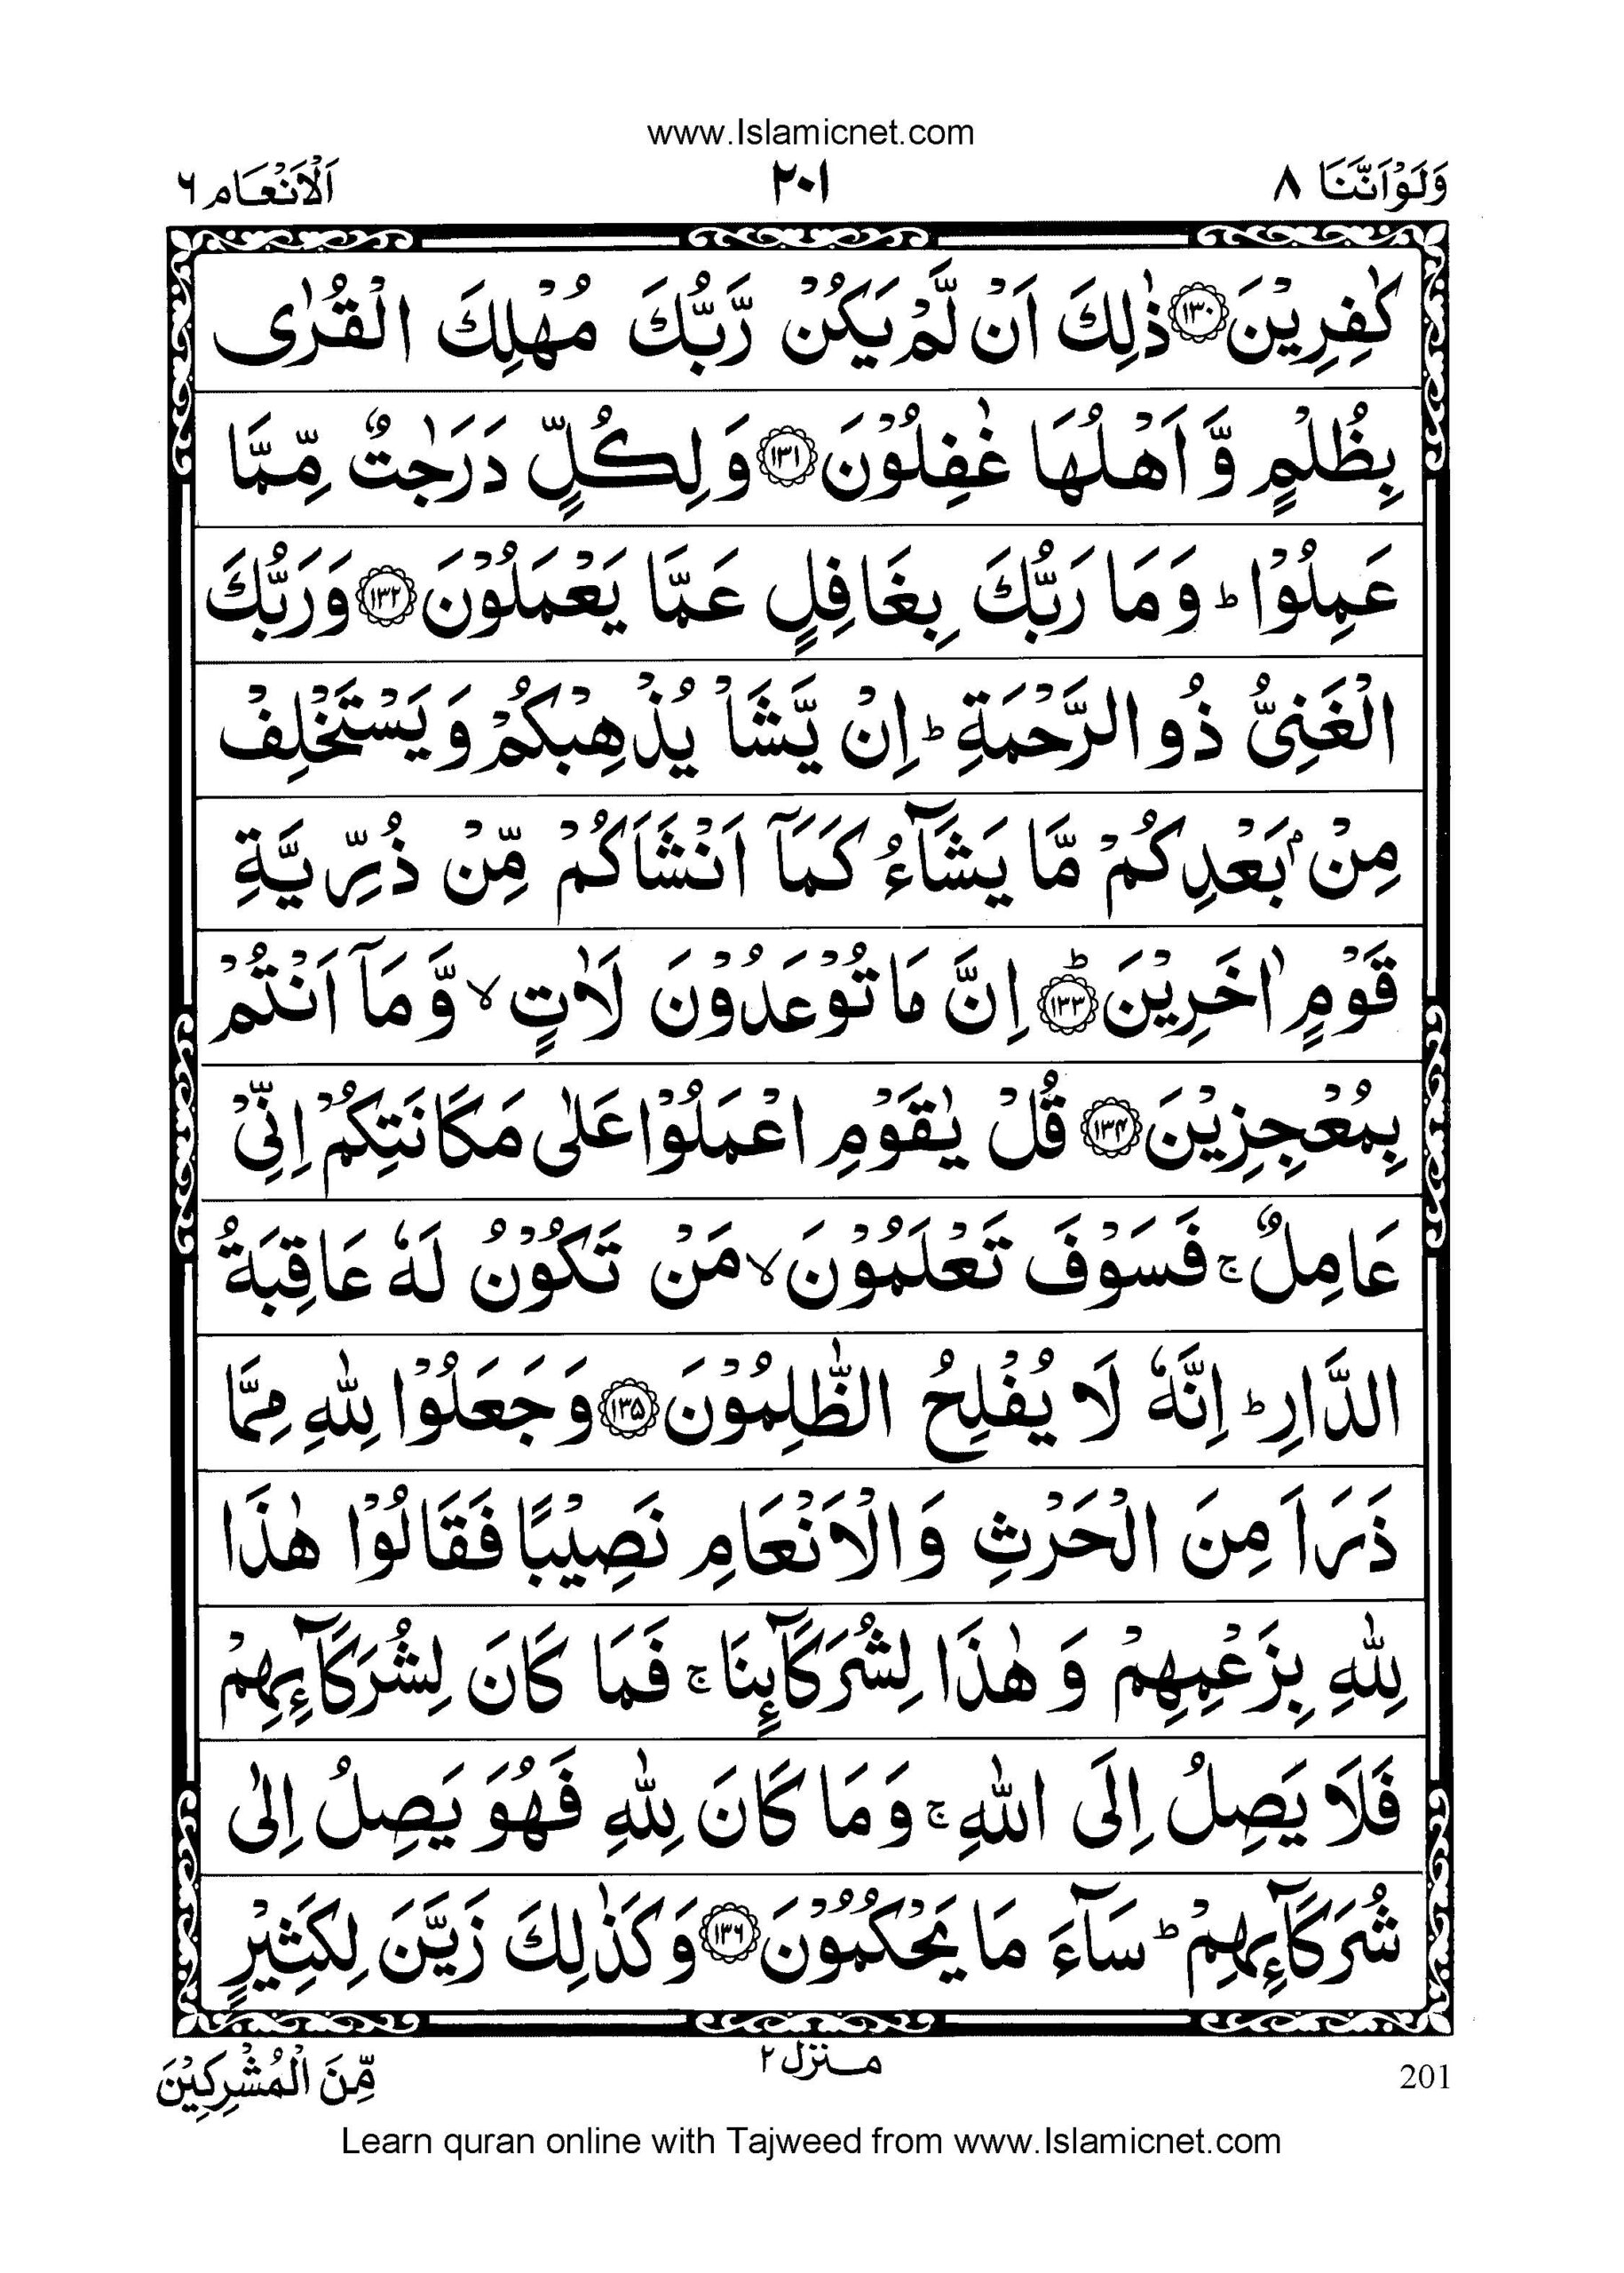 www.Islamicnet.com
وَلَوْاَنَّنَا ٨ ٢٠١ اَلْاَنْعَام ٦
كٰفِرِيْنَ ﴿١٣٠﴾ ذٰلِكَ اَنْ لَّمْ يَكُنْ رَّبُّكَ مُهْلِكَ الْقُرٰى
بِظُلْمٍ وَّاَهْلُهَا غٰفِلُوْنَ ﴿١٣١﴾ وَلِكُلٍّ دَرَجٰتٌ مِّمَّا
عَمِلُوْا ؕ وَمَا رَبُّكَ بِغَافِلٍ عَمَّا يَعْمَلُوْنَ ﴿١٣٢﴾ وَرَبُّكَ
الْغَنِىُّ ذُو الرَّحْمَةِ ؕ اِنْ يَّشَاْ يُذْهِبْكُمْ وَيَسْتَخْلِفْ
مِنْۢ بَعْدِكُمْ مَّا يَشَآءُ كَمَآ اَنْشَاَكُمْ مِّنْ ذُرِّيَّةِ
قَوْمٍ اٰخَرِيْنَ ؕ ﴿١٣٣﴾ اِنَّ مَا تُوْعَدُوْنَ لَاٰتٍ ۙ وَّمَآ اَنْتُمْ
بِمُعْجِزِيْنَ ﴿١٣٤﴾ قُلْ يٰقَوْمِ اعْمَلُوْا عَلٰى مَكَانَتِكُمْ اِنِّىْ
عَامِلٌ ۚ فَسَوْفَ تَعْلَمُوْنَ ۙ مَنْ تَكُوْنُ لَهٗ عَاقِبَةُ
الدَّارِ ؕ اِنَّهٗ لَا يُفْلِحُ الظّٰلِمُوْنَ ﴿١٣٥﴾ وَجَعَلُوْا لِلّٰهِ مِمَّا
ذَرَاَ مِنَ الْحَرْثِ وَالْاَنْعَامِ نَصِيْبًا فَقَالُوْا هٰذَا
لِلّٰهِ بِزَعْمِهِمْ وَهٰذَا لِشُرَكَآئِنَا ۚ فَمَا كَانَ لِشُرَكَآئِهِمْ
فَلَا يَصِلُ اِلَى اللّٰهِ ۚ وَمَا كَانَ لِلّٰهِ فَهُوَ يَصِلُ اِلٰى
شُرَكَآئِهِمْ ؕ سَآءَ مَا يَحْكُمُوْنَ ﴿١٣٦﴾ وَكَذٰلِكَ زَيَّنَ لِكَثِيْرٍ
مِّنَ الْمُشْرِكِيْنَ منزل ٢ 201
Learn quran online with Tajweed from www.Islamicnet.com